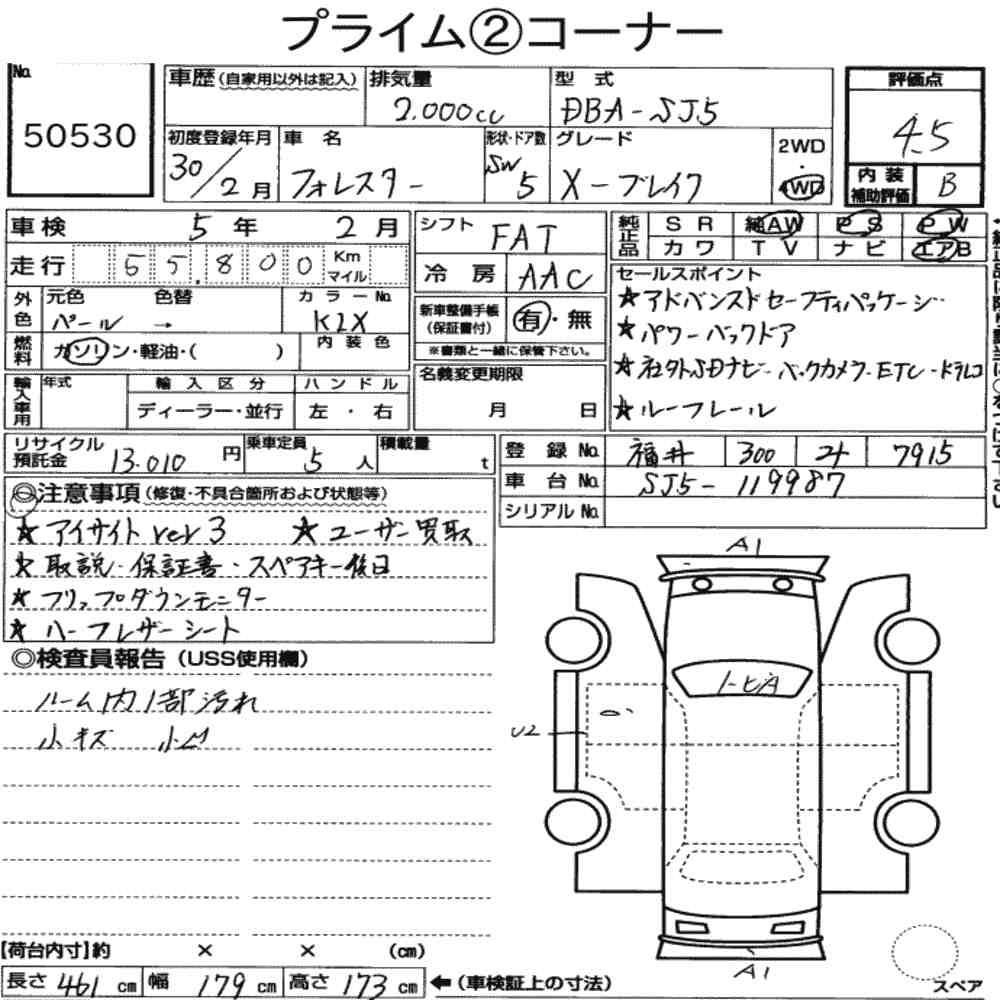 プライム②コーナー
No.
50530
車歴（自家用以外は記入）
排気量
2.000cc
型式
DBA-SJ5
評価点
4.5
内装補助評価
B
初度登録年月
30/2月
車名
フォレスター
形状・ドア数
SW 5
グレード
X-ブレイク
2WD・4WD
車検 5年 2月
走行 65,800 Km マイル
シフト
FAT
冷房
AAC
純正品 SR 純AW PS PW
カワ TV ナビ エアB
外色
元色 色替
パール →
カラーNo.
K1X
燃料
ガソリン・軽油・（ ）
内装色
新車整備手帳（保証書付）
有・無
※書類と一緒に保管下さい。
セールスポイント
★アドバンスドセーフティパッケージ
★パワーバックドア
★社外SDナビ・バックカメラ・ETC・ドラレコ
★ルーフレール
輸入車用
年式
輸入区分
ディーラー・並行
ハンドル
左・右
名義変更期限
月 日
リサイクル預託金
13.010円
乗車定員
5人
積載量
t
登録No.
福井 300 7915
車台No.
SJ5-119987
シリアルNo.
◎注意事項（修復・不具合箇所および状態等）
★アイサイト ver3 ★ユーザー買取
★取説・保証書・スペアキー後日
★フリップダウンモニター
★ハーフレザーシート
◎検査員報告（USS使用欄）
ルーム内1部汚れ
小キズ 小凹
A1
トビA
U2
A1
スペア
【荷台内寸】約 × × （cm）
長さ 461 cm 幅 179 cm 高さ 173 cm ←（車検証上の寸法）